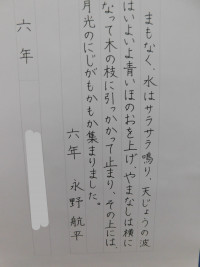 まもなく、水はサラサラ鳴り、天じょうの波
はいよいよ青いほのおを上げ、やまなしは横に
なって木の枝に引っかかって止まり、その上には、
月光のにじがもかもか集まりました。
六年 永野 航平
六年